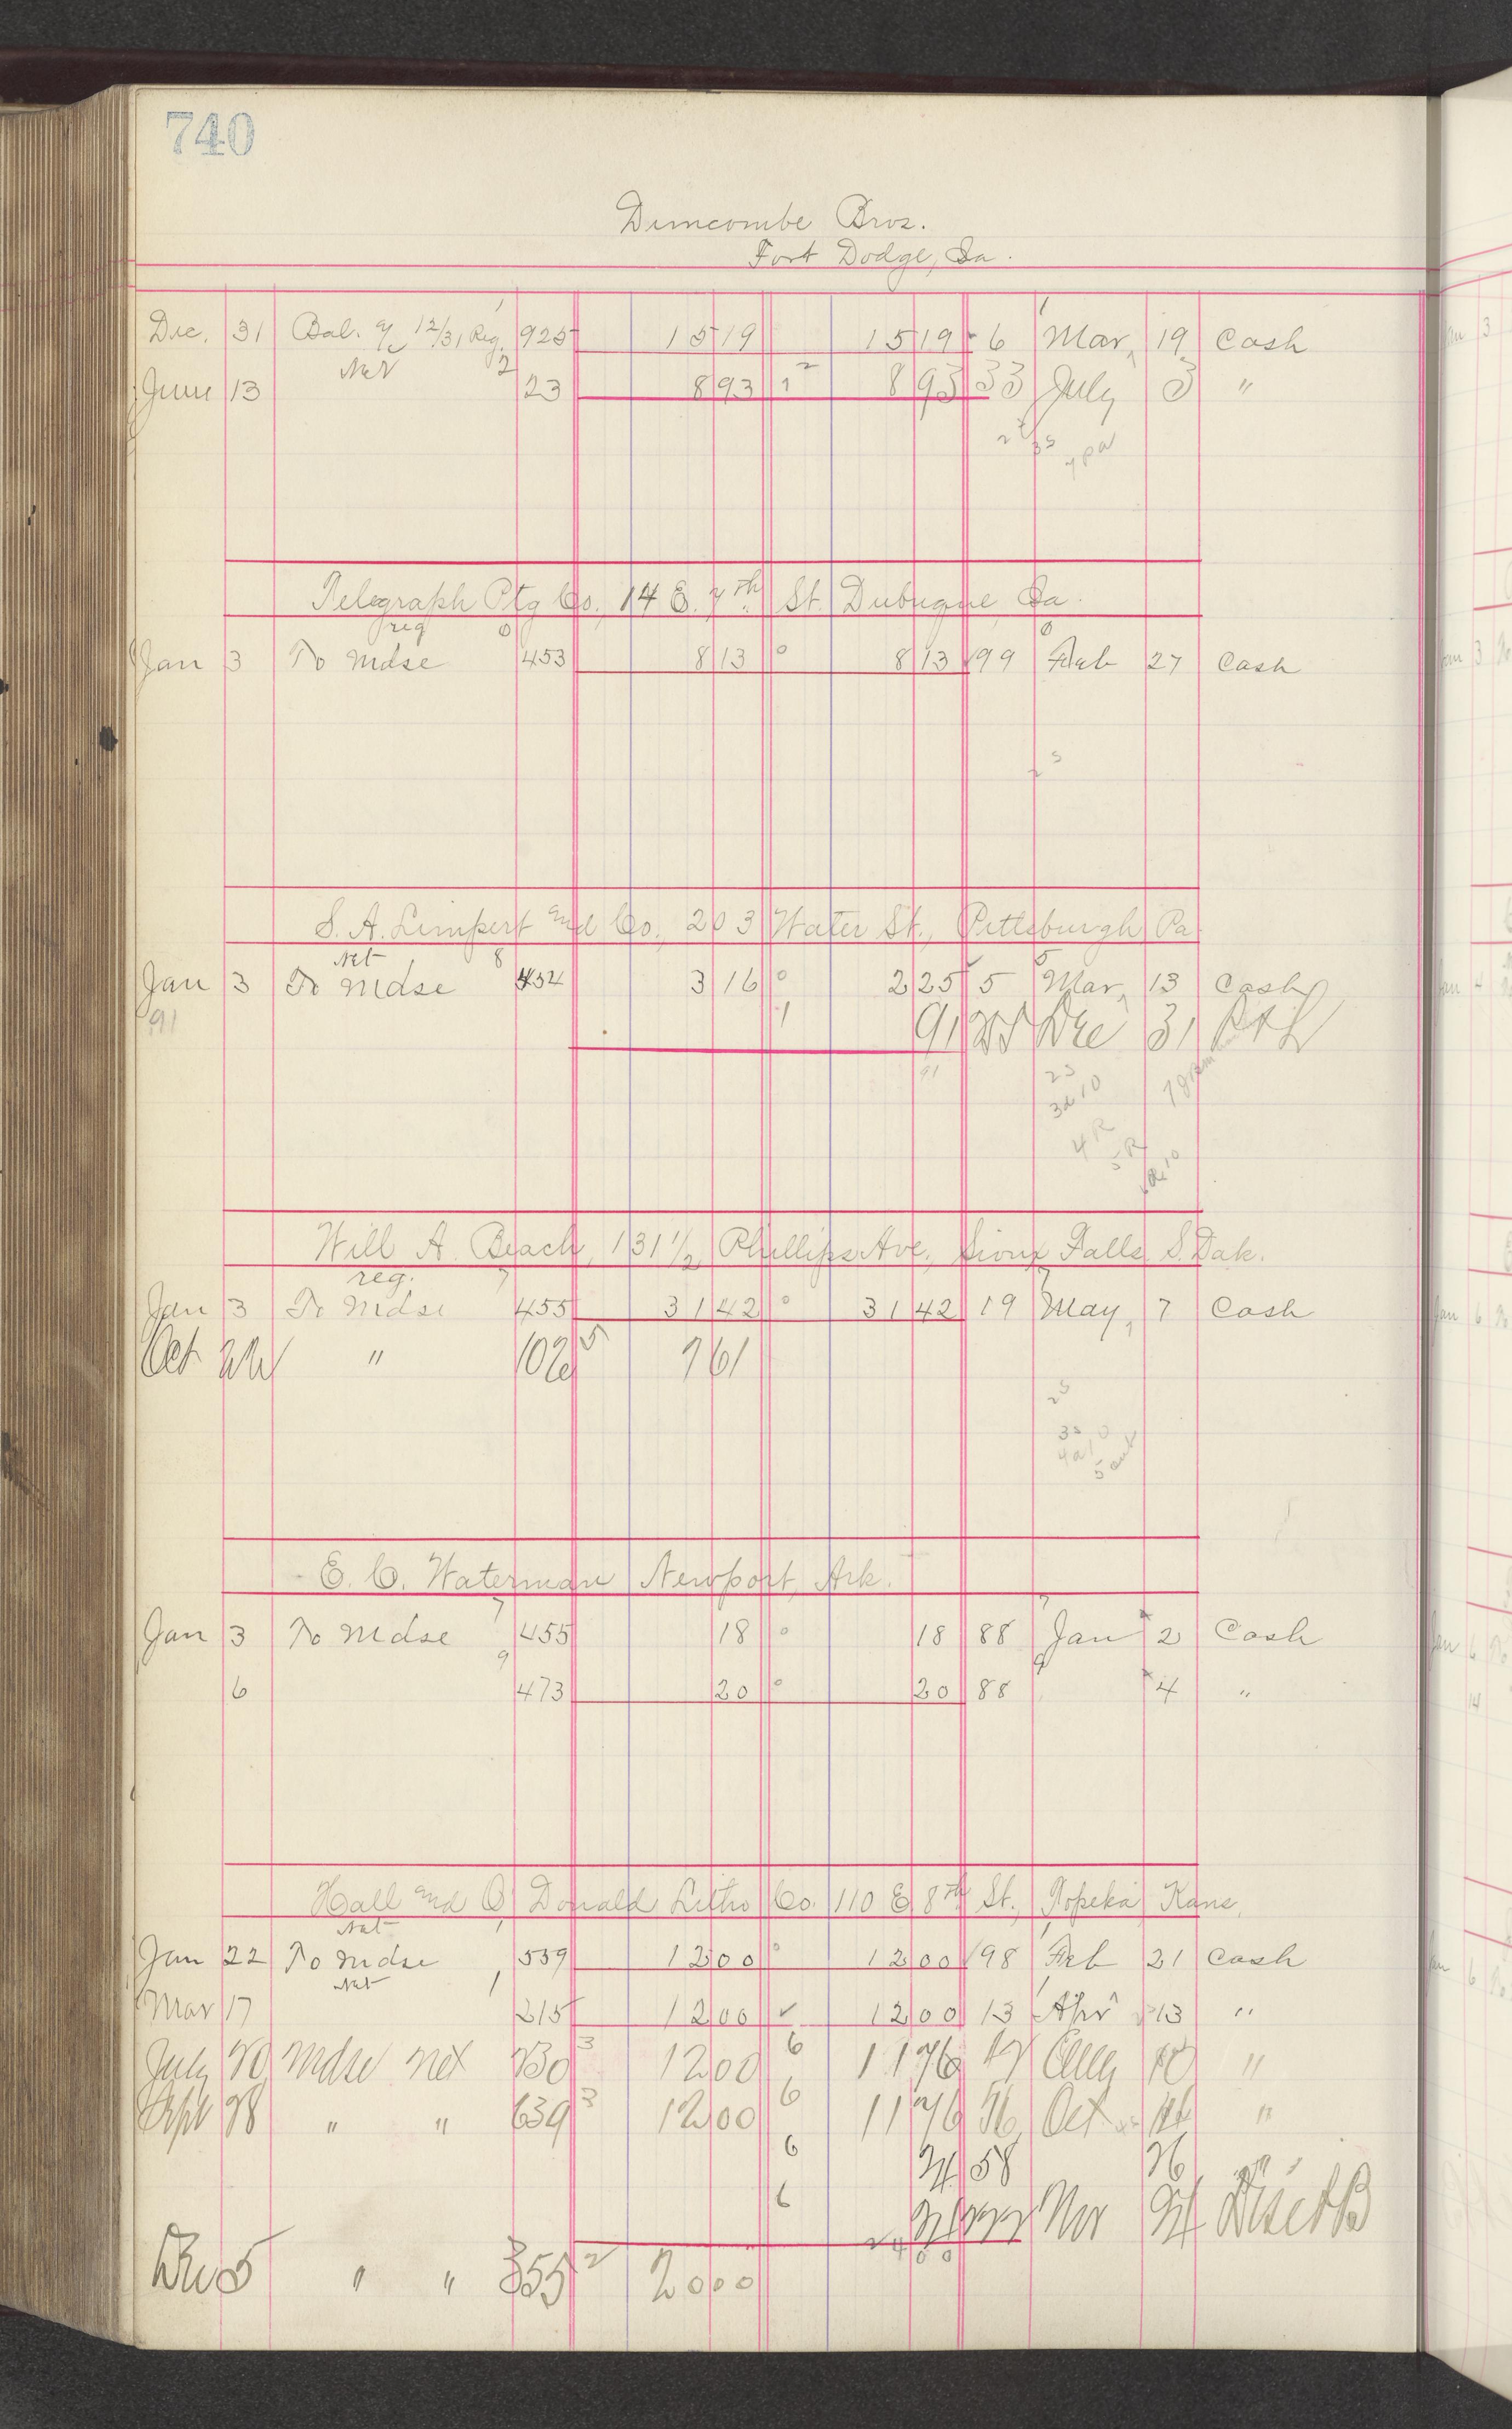 740
Duncombe Bros.
Fort Dodge, Ia.
Dec. 31 Bal. 12/31 Reg. 925 15 19 15 19 6 Mar, 19 Cash
Net 2
June 13 23 8 93 8 93 33 July 3 "
Telegraph Ptg Co., 14 E. 7th St. Dubuque, Ia.
reg
Jan 3 To Mdse 453 8 13 0 8 13 99 Feb 27 Cash
S. A. Limpert and Co., 203 Water St., Pittsburgh Pa
Net 8
Jan 3 To Mdse 454 3 16 0 2 25 5 Mar, 13 Cash
91 1 91 Dec 31 P&L
91 23
Will A. Beach, 131 1/2 Phillips Ave., Sioux Falls S. Dak.
reg. 7
Jan 3 To Mdse 455 31 42 0 31 42 19 May, 7 Cash
Oct " 102 5 7 61
E. C. Waterman Newport, Ark.
Jan 3 To Mdse 455 18 0 18 88 Jan 2 Cash
6 473 20 0 20 88 4 "
Hall and O'Donald Litho Co. 110 E 8th St., Topeka Kans.
Net
Jan 22 To Mdse 539 12 00 0 12 00 98 Feb 21 Cash
Net
Mar 17 215 12 00 12 00 13 Apr 13 "
July 20 Mdse Net 230 3 12 00 6 11 76 Aug 10 "
Sept 28 " " 639 3 12 00 6 11 76 Oct "
6 24 58
6 Nov 24
Dec 5 " " 355 2 20 00